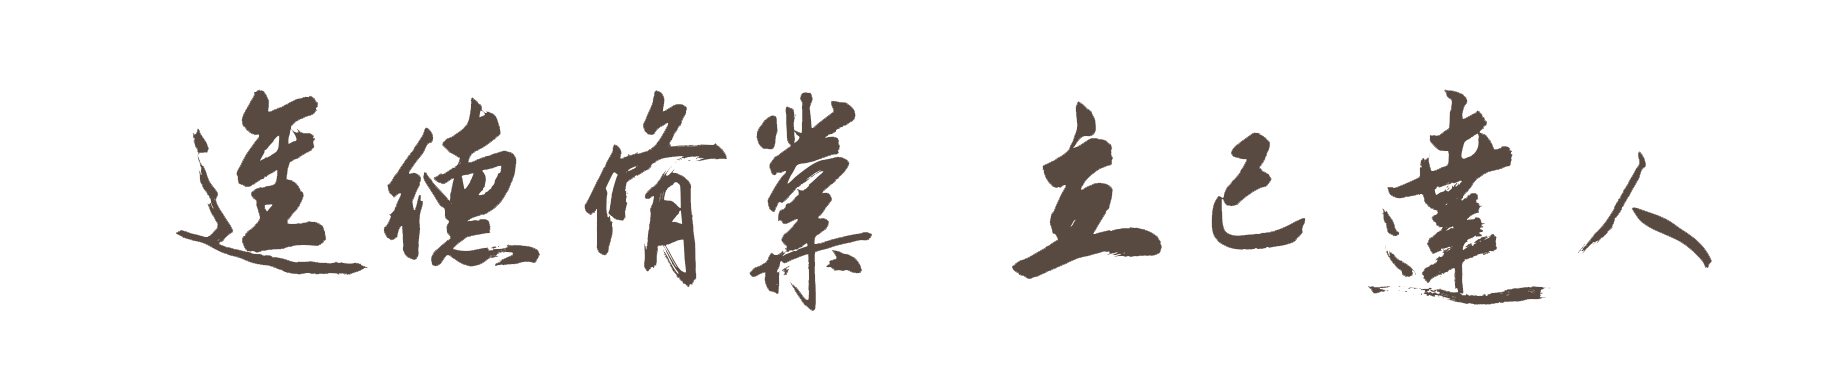 進德脩業 立己達人